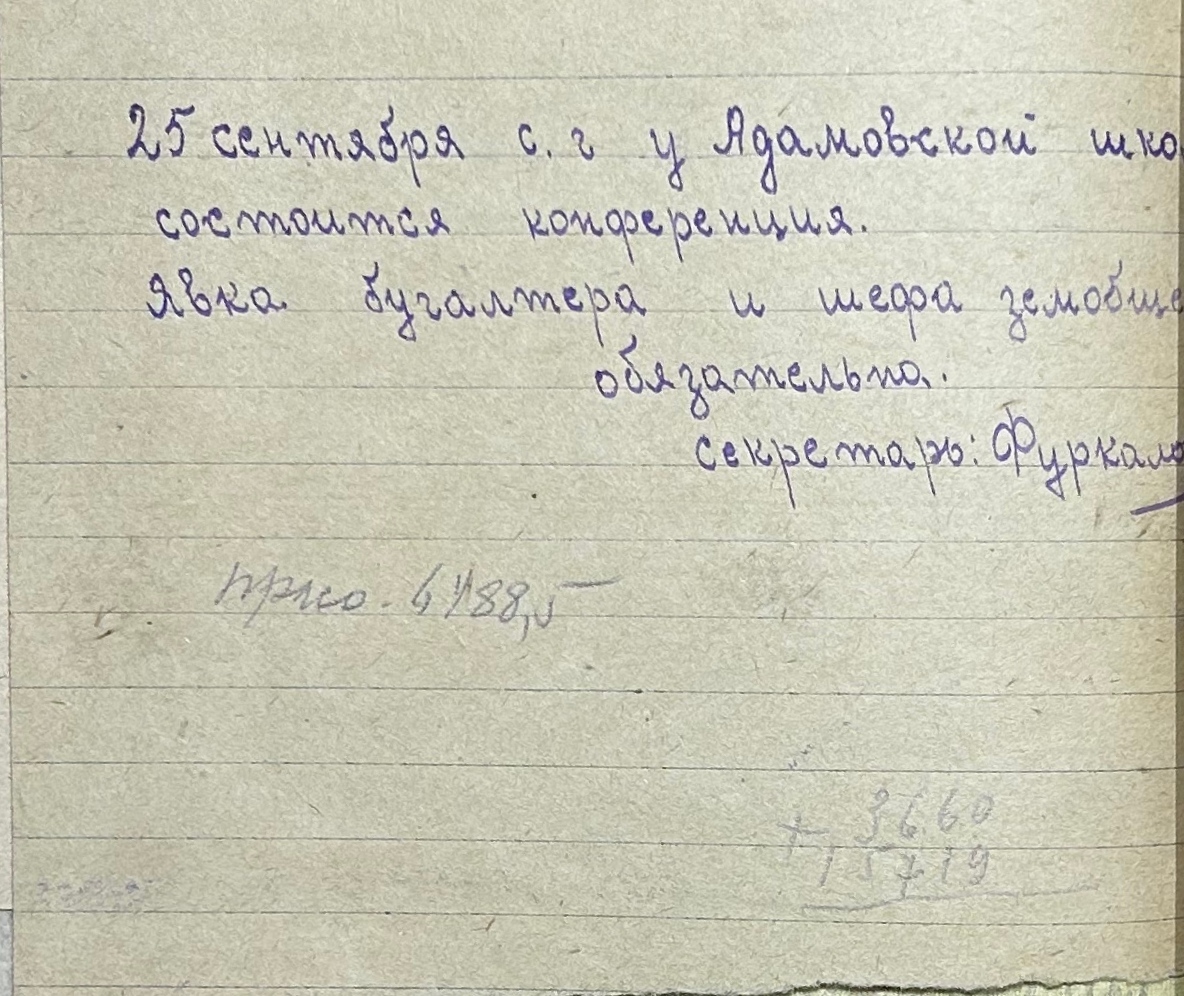 25 сентября с. г у Адамовской шко
состоится конференция.
Явка бугалтера и шефа земобще
обязательна.
секретарь: Фуркало
3660
+ 15719